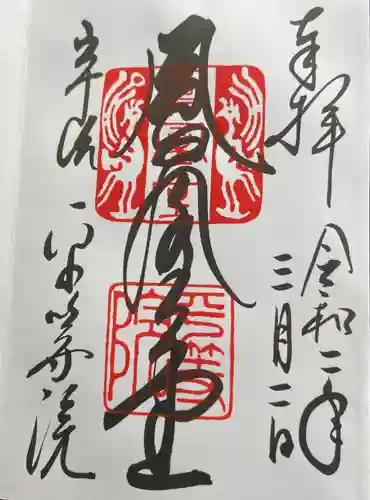 奉拝
令和二年
三月二日
鳳凰堂
宇治 平等院
平等院